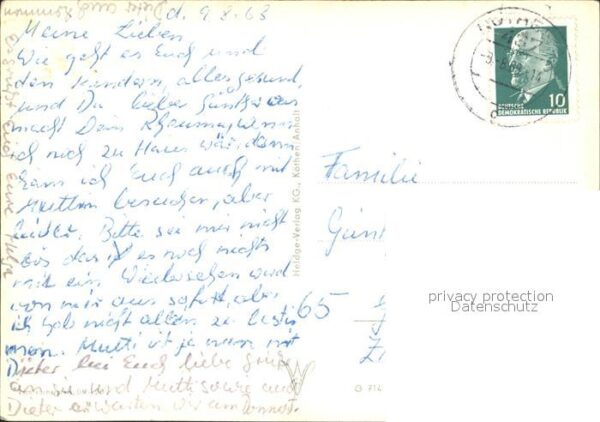 d. 9.8.63
Meine Lieben
Wie geht es Euch und
den Kindern, alles gesund,
und Du lieber Günther was
macht Dein Rheuma, wenn
ich noch zu Haus wär, dann
käm ich Euch auch mit
Mutti besuchen, aber
leider. Bitte sei mir nicht
bös das es noch nichts
mit ein Wiedersehen wird
von mir aus sofort, aber
ich hab nicht allein zu bestim
men. Mutti ist ja nun mit
Dieter bei Euch liebe Grüße
an sie und Mutti sowie auch
Dieter erwarten wir am Donnerst.
es grüßt Euch Eure Helga
Heldge-Verlag KG., Köthen/Anhalt
KÖTHE
10
DEUTSCHE
DEMOKRATISCHE REPUBLIK
Familie
Günt
65
G 714
privacy protection
Datenschutz